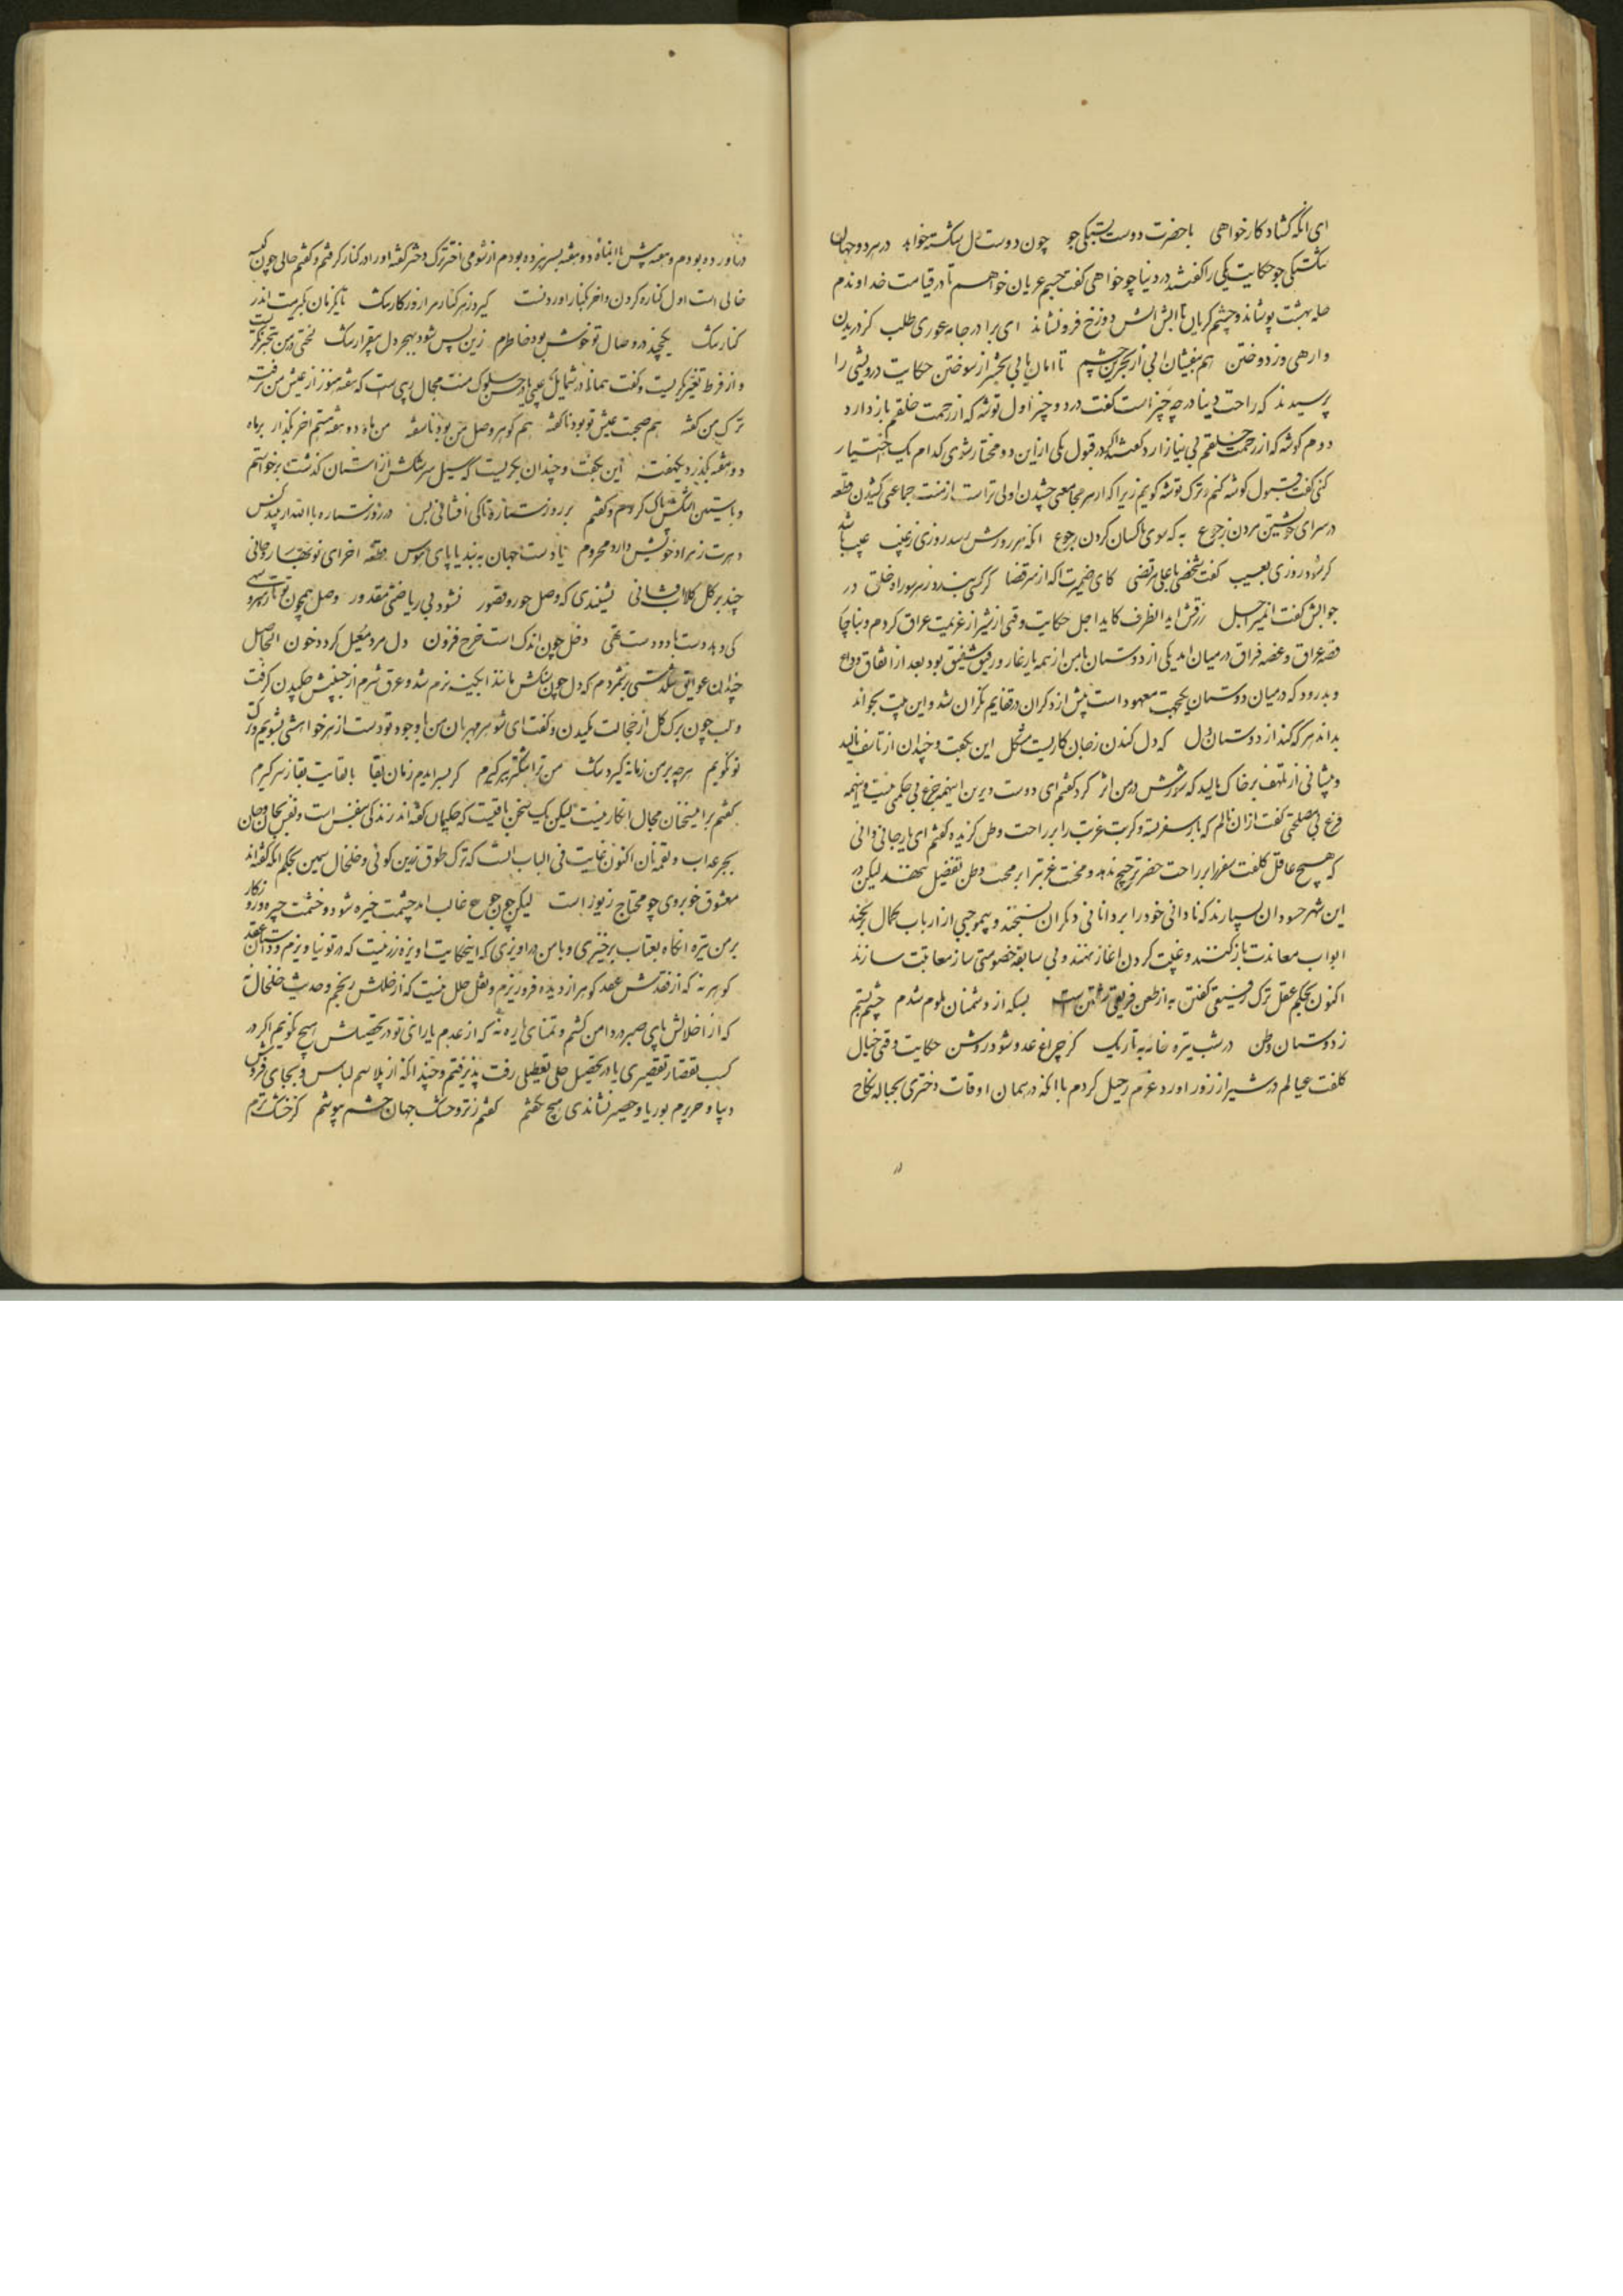 ای انکه کشاد کار خواهی با حضرت دوست بستکی جو چون دوست دل شکسته خواهد در هر دو جهان
شکستکی جو حکایت یکی را کفتند در دنیا چو خواهی کفت جسم عریان خواهم تا در قیامت خداوندم
حله بهشت پوشاند و چشم کریان تا اتش دوزخ فرونشاند ای برادر جامه عوری طلب کز دریدن
وارهی وز دوختن هم بیفشان ابی از بحرین چشم تا امان یابی بحشر از سوختن حکایت درویشی را
پرسیدند که راحت دنیا در چه چیز است کفت در دو چیز اول توشه که از زحمت خلقم باز دارد
دوم کوشه که از رحمت خلقم بی نیاز ارد کفتند اکر در قبول یکی از این دو مختار شوی کدام یک اختیار
کنی کفت قبول کوشه کنم و ترک توشه کویم زیرا که از سر مجامعی چشیدن اولی تر است از منت جماعتی کشیدن قطعه
در سرای خویشتن مردن ز جوع به که سوی ناکسان کردن رجوع انکه هر روزش رسد روزی ز غیب عیب باشد
کر شود روزی بعیب کفت شخصی با علی مرتضی کای ضمیرت اکه از سر قضا کر کسی بندد ز هر سو راه خلق در
جوابش کفت انمیر اجل رزقش اید از انطرف کاید اجل حکایت وقتی از شیراز عزیمت عراق کردم و بناچار
قصه عراق و غصه فراق در میان امد یکی از دوستان با من از همه یار غار و رفیق شفیق بود بعد از اتفاق وداع
و بدرود که در میان دوستان یکجهت معهود است پیش از دکران در قفایم نکران شد و این بیت بخواند
بداند هر که کند از دوستان دل که دل کندن ز جان کاریست مشکل این بکفت و چندان از تاسف نالید
و پیشانی از تلهف بر خاک مالید که سوزش در من اثر کرد کفتم ای دوست دیرین اینهمه جزع بی حکمی نیست و اینهمه
فزع بی مصلحتی کفت از ان نالم که بار سفر بسته و کربت غربت را بر راحت وطن کزیده کفتم ای یار جانی دانی
که هیچ عاقل کلفت سفر را بر راحت حضر ترجیح ندهد و محنت غربترا بر محبت وطن تفضیل ننهد لیکن در
این شهر حسودان بسیارند که نادانی خود را بر دانائی دیکران نسنجند و بیموجبی از ارباب کمال برنجند
ابواب معاندت باز کنند و غیبت کردن اغاز نهند و بی سابقه خصومتی ساز معاتبت سازند
اکنون بحکم عقل ترک رفیقی کفتن به از طعن فریقی شنفتن است بسکه از دشمنان ملوم شدم چشم بستم
ز دوستان وطن در شب تیره خانه به تاریک کز چراغ عدو شود روشن حکایت وقتی خیال
کلفت عیالم در شیراز زور اورد و عزم رحیل کردم با انکه در همان اوقات دختری بحباله نکاح
در
دراورده بودم و هفته پیش با ابناء دو هفته بسر نبرده بودم از شومی اختر ترک دختر کفته او را در کنار کرفتم و کفتم حالی چون کیسه
خالی است اول کناره کردن و اخر کنار اوردنست کیرد ز هر کنار مرا روزکار تنک تا یکزمان بکیرمت اندر
کنار تنک یکچند در وصال تو خوش بود خاطرم زین پس شود بهجر دل بیقرار تنک لختی در من بتحیر نکریست
و از فرط تغیر بکریست و کفت همانا در شمایل عیبی یا در حسن سلوک منت مجال ریبی است که هفته هنوز از عیش من نرفته
ترک من کفته هم صحبت عیش تو بود ناکفته هم کوهر وصل من بود ناسفته من ماه دو هفته ستم اخر بکذار بر ماه
دو هفته بکذرد یکهفته این بکفت و چندان بکریست که سیل سرشکش از استان کذشت برخواستم
و باستین اشکش پاک کردم و کفتم بر روز ستاره تا کی افشانی بس در روز ستاره با الله ار بیند کس
دهرت ز مراد خویش دارد محروم تا دست جهان به بندی پای هوس قطعه اخر ای نو بهار روحانی
چند بر کل کلاب افشانی نشنیدی که وصل حور و قصور نشود بی ریاضتی مقدور وصل همچون تو تازه سرو سهی
کی دهد دست با دو دست تهی دخل چون اندک است خرج فزون دل مرد معیل کردد خون الحاصل
چندان عوایق تنکدستی برشمردم که دل چون سنکش مانند ابکینه نرم شد و عرق شرم از جبینش چکیدن کرفت
و لب چون برک کل از خجالت مکیدن و کفت ای شوهر مهربان من با وجود تو دست از هر خواهشی بشویم و ترک
تو نکویم هر چه بر من زمانه کیرد تنک من ترا تنکتر ببر کیرم کر سر ایدم زمان بقا با لقایت بقا ز سر کیرم
کفتم بر اینسخنان مجال انکار نیست لیکن یک سخن باقیست که حکیمان کفته اند زندکی بنفس است و نفس بجان و جان
بجرعه اب و لقمه نان اکنون غایت فی الباب انست که ترک طوق زرین کوئی و خلخال سیمین بحکم انکه کفته اند
معشوق خوبروی چو محتاج زیور است لیکن چون جوع غالب اید چشمت خیره شود و خشمت چیره و روزکار
بر من تیره انکاه بعتاب برخیزی و با من دراویزی که اینحکایت اویزه زر نیست که در تو نیاویزم و داستان عقد
کوهر نه که از فقدش عقد کوهر از دیده فروریزم و نقل حلل نیست که از خللش رنجم و حدیث خلخال نه
که از اخلالش پای صبر در دامن کشم و تمنای یاره نه که از عدم یارائی تو در تحصیلش هیچ نکویم اکر در
کسب تقصار تقصیری یا در تحصیل حلی تعطیلی رفت پذیرفتم و چندانکه از پلاسم لباس و بجای فروش
دیبا و حریرم بوریا و حصیر نشاندی هیچ نکفتم کفتم ز تر و خشک جهان چشم بپوشم کز خشک و ترم